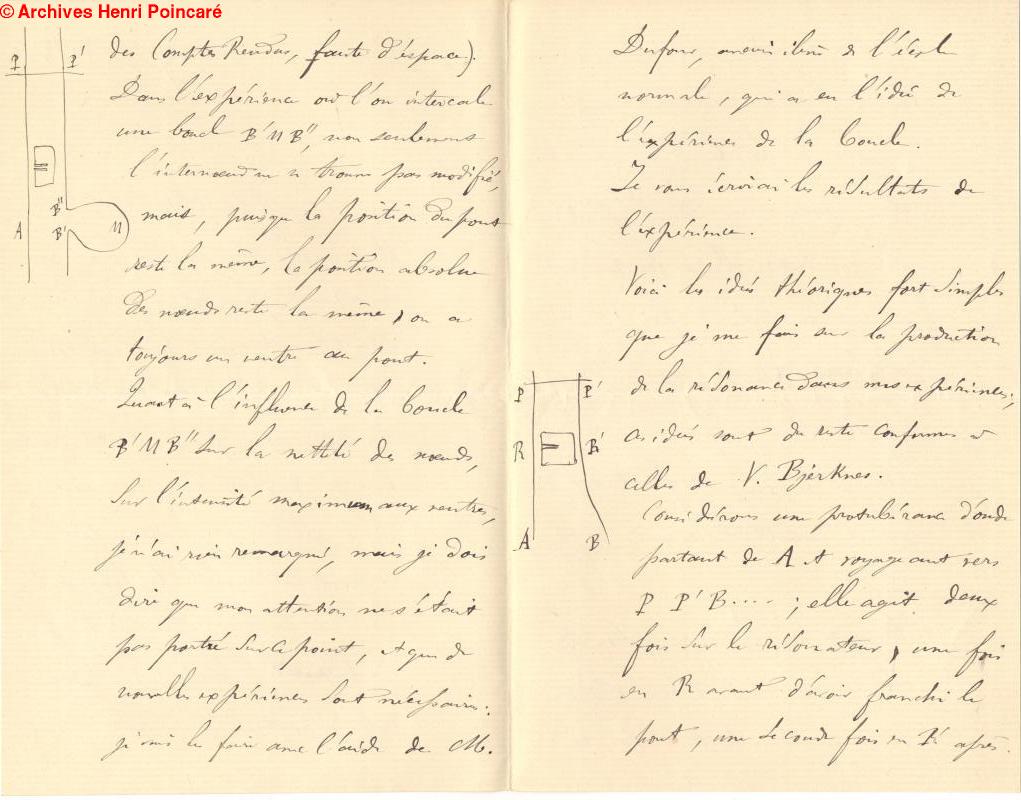 © Archives Henri Poincaré
des Comptes Rendus, faute d'espace).
Dans l'expérience où l'on intercale
une boucle B'MB'', non seulement
l'internœud ne se trouve pas modifié,
mais, puisque la position du pont
reste la même, la position absolue
des nœuds reste la même, on a
toujours un ventre au pont.
Quant à l'influence de la boucle
B'MB'' sur la netteté des nœuds,
sur l'intensité maximum aux ventres,
je n'ai rien remarqué, mais je dois
dire que mon attention ne s'était
pas portée sur ce point, et que de
nouvelles expériences sont nécessaires;
je vais les faire avec l'aide de M.
P P'
A B'' B' M
Dufour, ancien élève de l'école
normale, qui a eu l'idée de
l'expérience de la boucle.
Je vous écrirai les résultats de
l'expérience.
Voici les idées théoriques fort simples
que je me fais sur la production
de la résonance dans mes expériences;
ces idées sont du reste conformes à
celles de V. Bjerknes.
Considérons une protubérance d'onde
partant de A et voyageant vers
P P' B....; elle agit deux
fois sur le résonateur, une fois
en R avant d'avoir franchi le
pont, une seconde fois en R' après.
P P'
R R'
A B